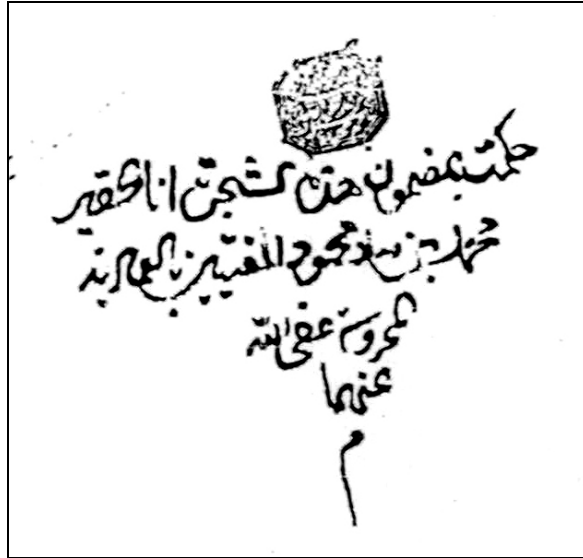 حكمت بمضمون هذه الشجرة انا الفقير
بن سيد محمود المفتيين بالعمادية
المحروسة عفى الله
عنهما
م